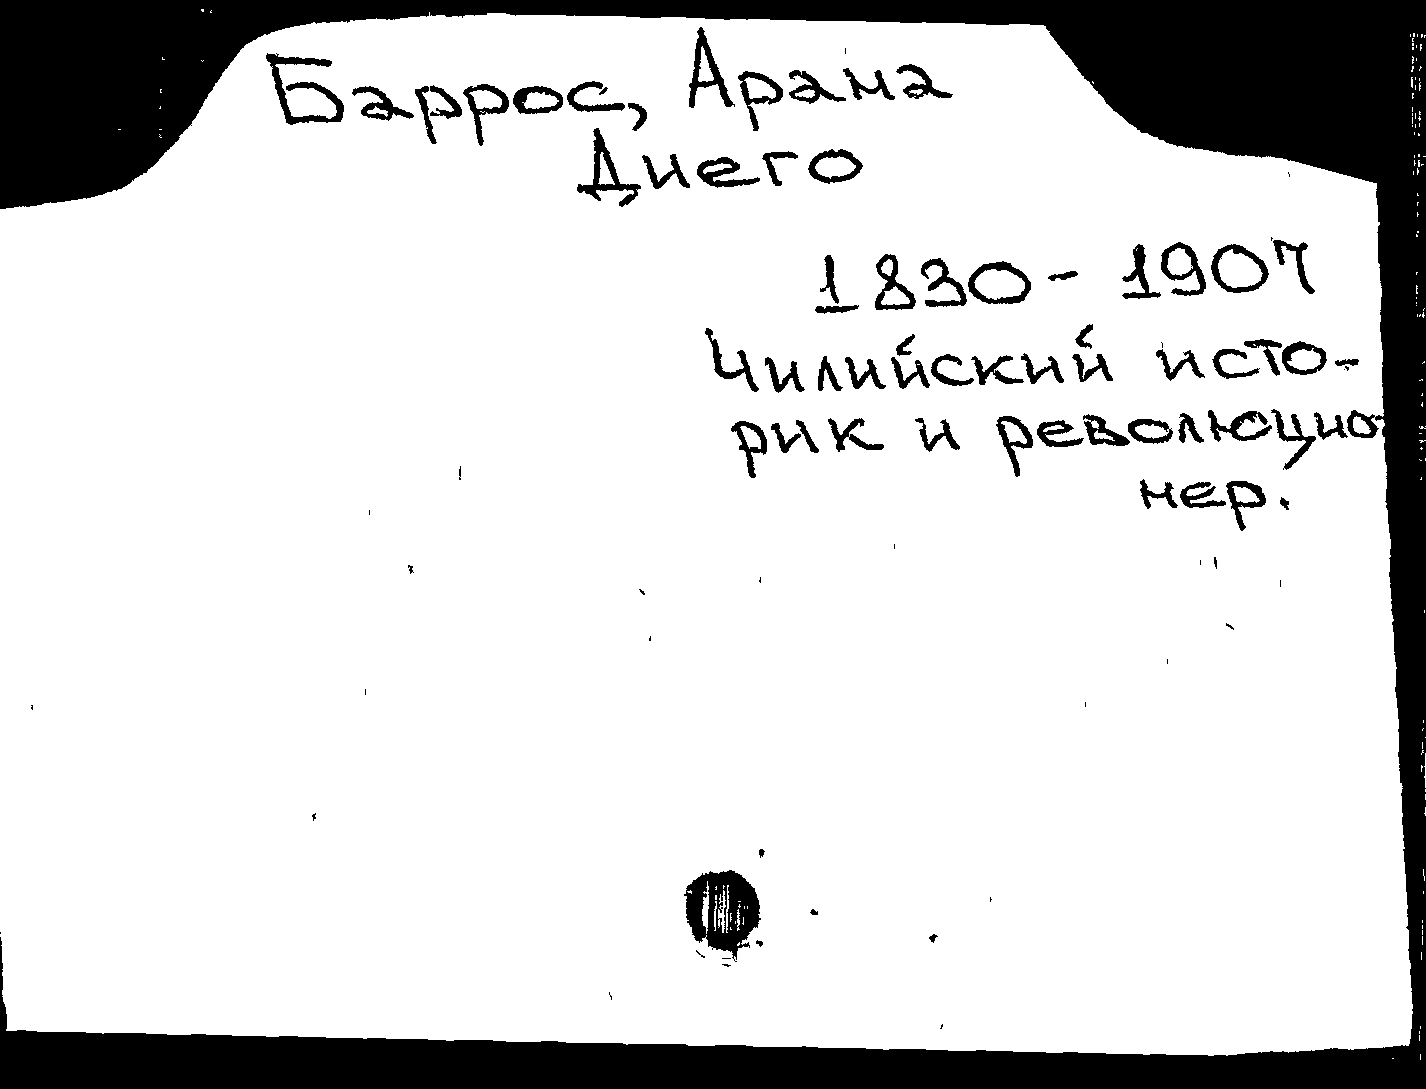 Баррос, Арана
Диего
1830 - 1907
Чилийский исто-
рик и революцио-
нер.